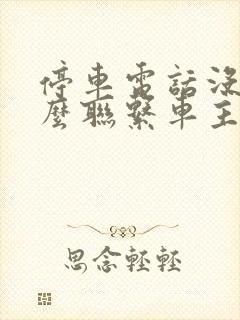 停車電話沒
麼聯繫車主
思念輕輕